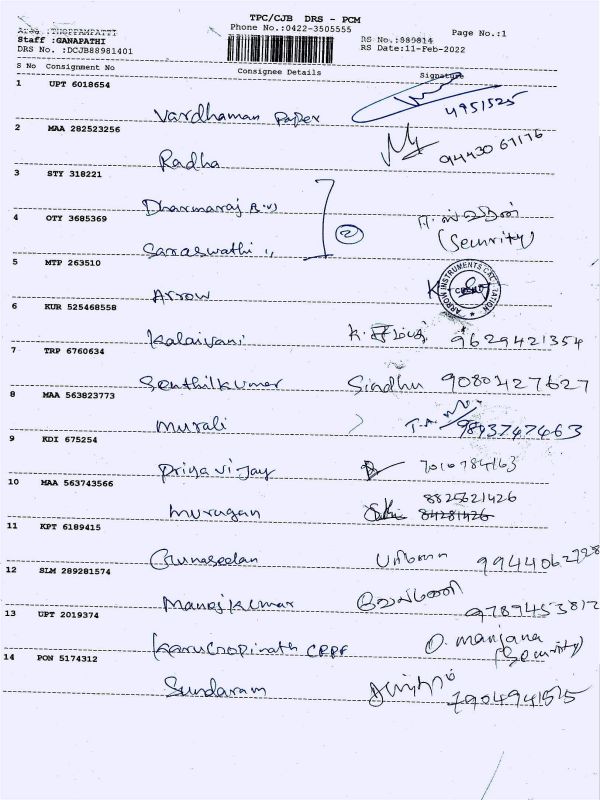 TPC/CJB DRS - PCM
Area :THOPPAMPATTI
Phone No.:0422-3505555
Page No.:1
Staff :GANAPATHI
RS No.:889814
DRS No. :DCJB88981401
RS Date:11-Feb-2022
S No Consignment No Consignee Details Signature
1 UPT 6018654
Vardhaman Paper 4951525
2 MAA 282523256
Radha 94430 67176
3 STY 318221
Dharmaraj
4 OTY 3685369
2 (Security)
Saraswathi "
5 MTP 263510
Arrow K
6 KUR 525468558
Kalaivani 9629421354
7 TRP 6760634
Senthilkumar Sindhu 9080427627
8 MAA 563823773
Murali 9893747463
9 KDI 675254
Priya vijay 7010784163
10 MAA 563743566
8825621426
Murugan 84281426
11 KPT 6189415
Gunaseelan 9944062728
12 SLM 289281574
Manojkumar 9789453812
13 UPT 2019374
CRPF O. Manjana (Security)
14 PON 5174312
Sundaram 7904941515